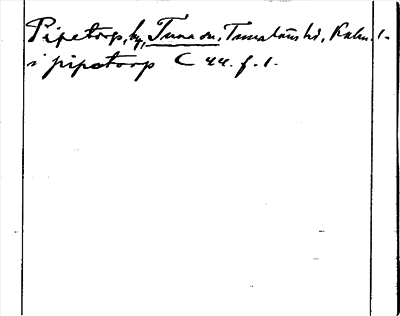 Pipetorp, by, Tuna sn, Tunaläns hd, Kalm. l.
i pipetorp C 44. f. 1.